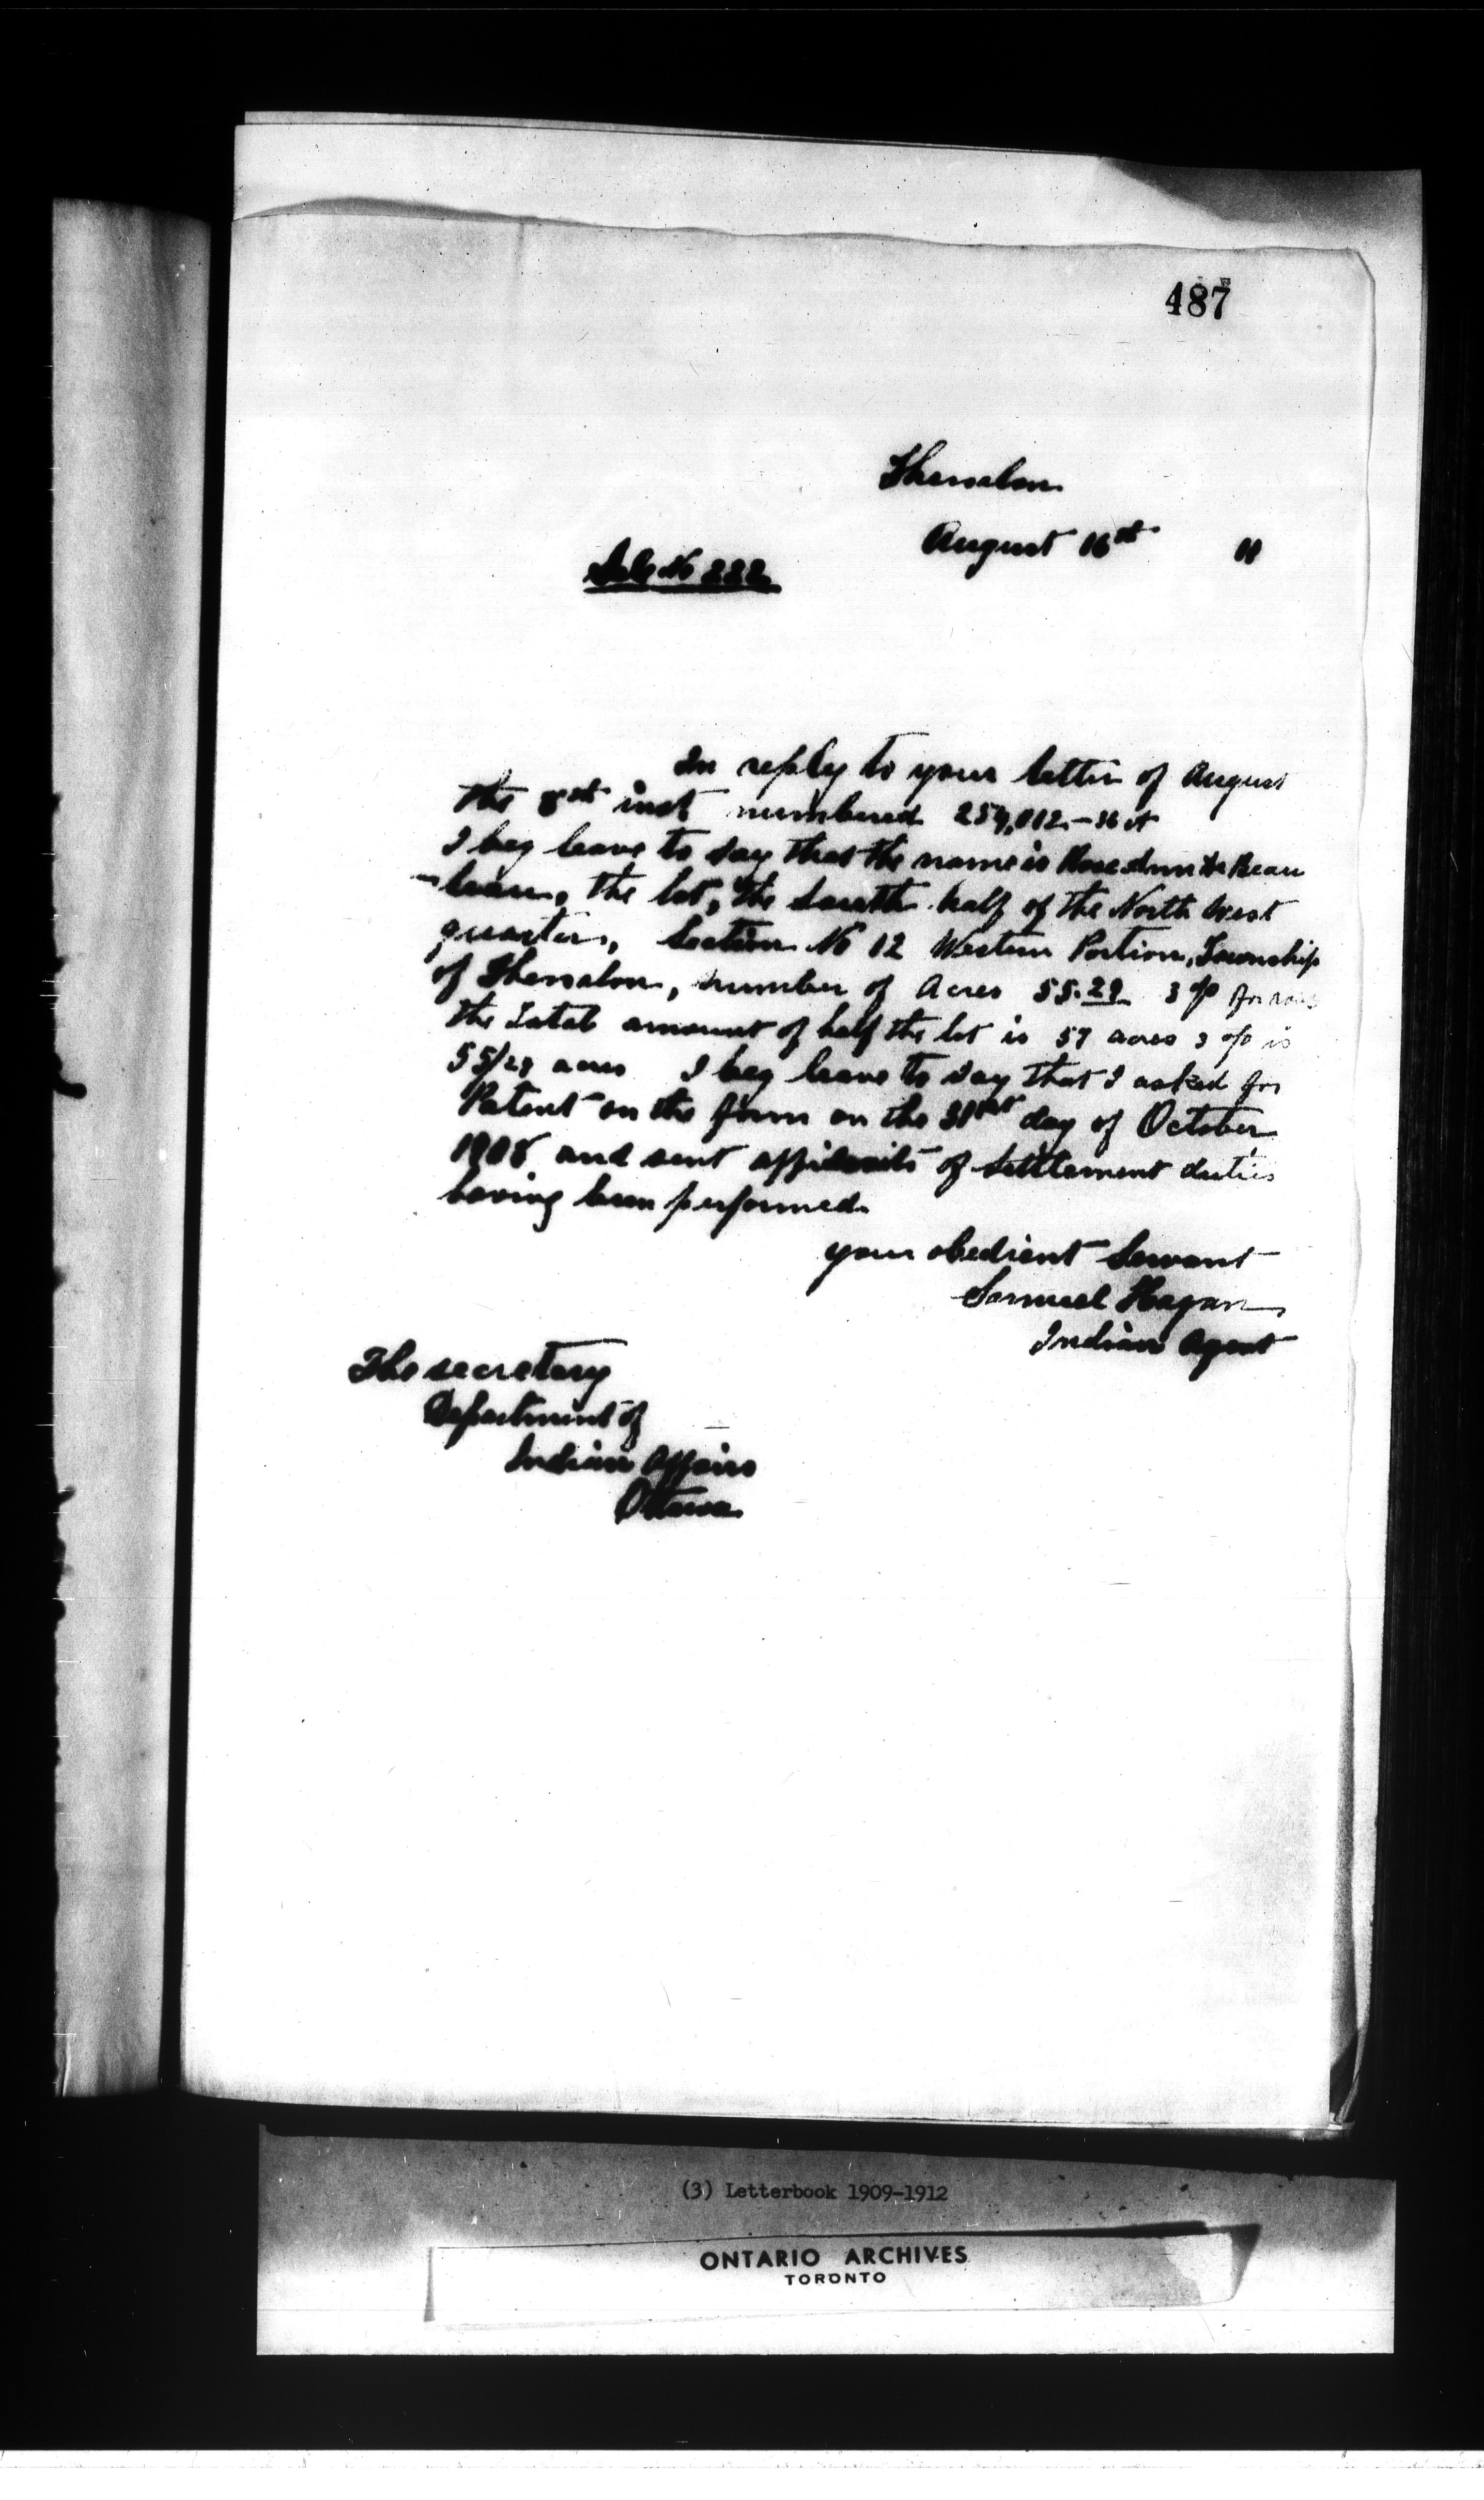 487
Thessalon
August 16th 11
Sale No 222
In reply to your letter of August
the 8th inst numbered 254,012-
I beg leave to say that the name is Rose Ann De Beau
the lot, the South half of the North West
quarter, Section No 12 Western Portion, Township
of Thessalon, number of Acres 55.29 3 % for
the Total amount of half the lot is 57 acres 3 % is
55/29 acres I beg leave to say that I asked for
Patent on the form on the 31st day of October
1908 and sent affidavits of Settlement duties
having been performed.
your obedient Servant
Samuel Hagan
Indian Agent
The secretary
Department of
Indian Affairs
Ottawa
(3) Letterbook 1909-1912
ONTARIO ARCHIVES
TORONTO